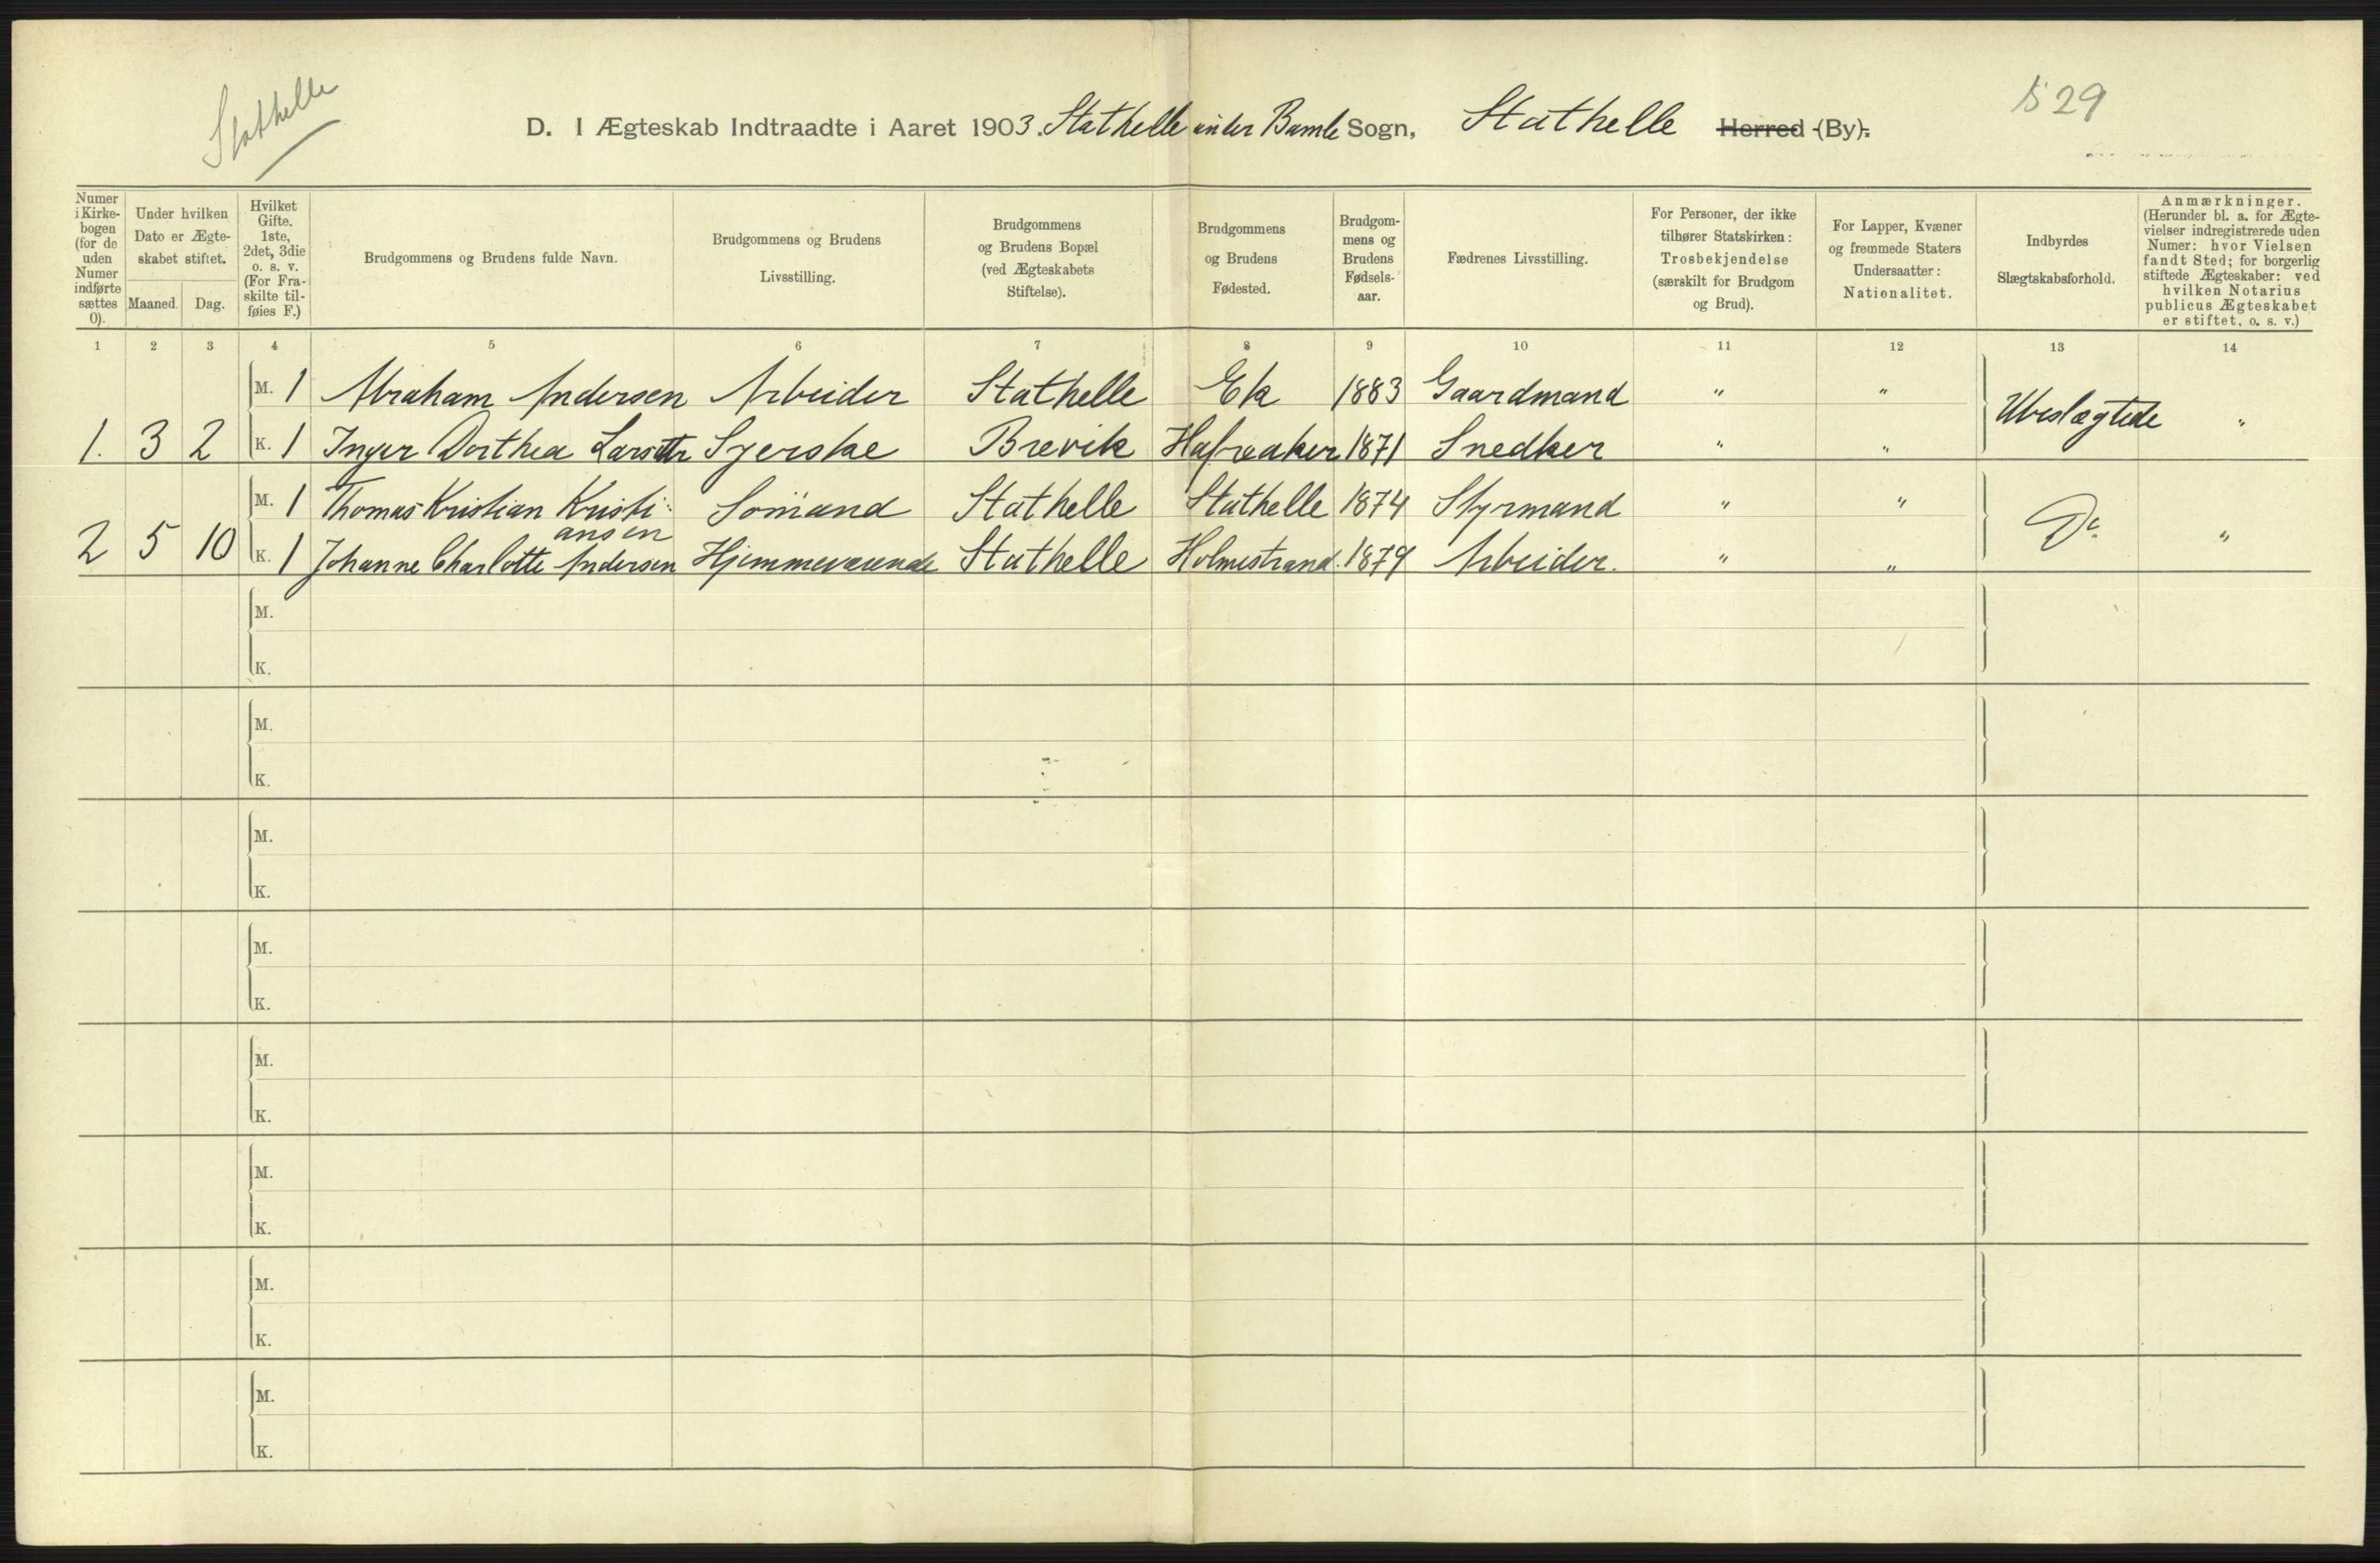 Stathelle
529
D. I Ægteskab Indtraadte i Aaret 1903. Stathelle under Bamle Sogn, Stathelle Herred (By).
Numer i Kirkebogen (for de uden Numer indførte sættes 0).
Under hvilken Dato er Ægteskabet stiftet.
Maaned. Dag.
Hvilket Gifte. 1ste, 2det, 3die o. s. v. (For Fraskilte tilføies F.)
Brudgommens og Brudens fulde Navn.
Brudgommens og Brudens Livsstilling.
Brudgommens og Brudens Bopæl (ved Ægteskabets Stiftelse).
Brudgommens og Brudens Fødested.
Brudgommens og Brudens Fødselsaar.
Fædrenes Livsstilling.
For Personer, der ikke tilhører Statskirken: Trosbekjendelse (særskilt for Brudgom og Brud).
For Lapper, Kvæner og fremmede Staters Undersaatter: Nationalitet.
Indbyrdes Slægtskabsforhold.
Anmærkninger. (Herunder bl. a. for Ægtevielser indregistrerede uden Numer: hvor Vielsen fandt Sted; for borgerlig stiftede Ægteskaber: ved hvilken Notarius publicus Ægteskabet er stiftet, o. s. v.)
1 2 3 4 5 6 7 8 9 10 11 12 13 14
M. 1 Abraham Andersen Arbeider Stathelle Ek 1883 Gaardmand " " Ubeslægtede
1. 3 2 K. 1 Inger Dorthea Larsdtr Syerske Brevik Hafredaker 1871 Snedker " " "
M. 1 Thomas Kristian Kristi- Sömand Stathelle Stathelle 1874 Styrmand " " Do
ansen
2 5 10 K. 1 Johanne Charlotte Andersen Hjemmeværende Stathelle Holmestrand. 1879 Arbeider. " " "
M.
K.
M.
K.
M.
K.
M.
K.
M.
K.
M.
K.
M.
K.
M.
K.